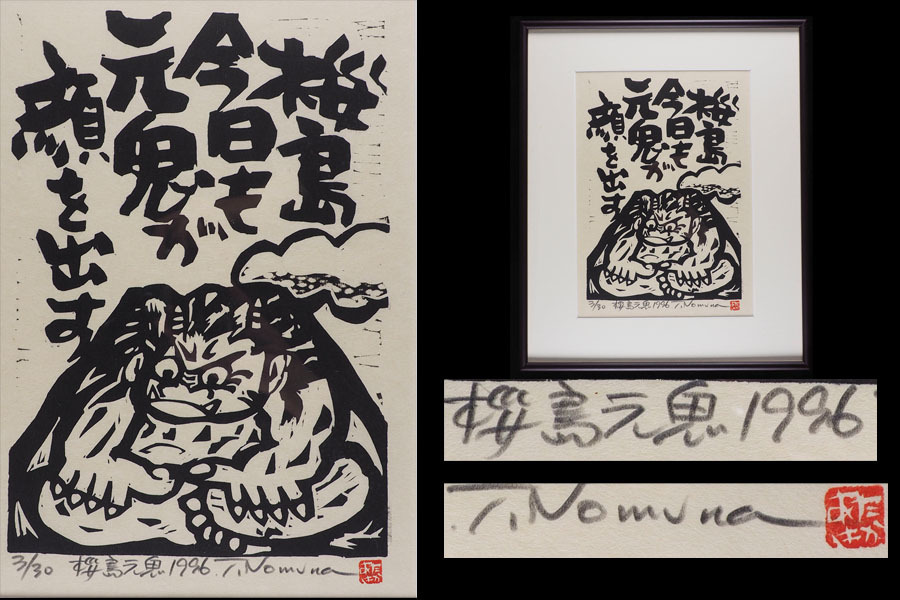 桜島
今日も
元鬼が
顔を出す
3/30 桜島元鬼 1996 T. Nomura
桜島
今日も
元鬼が
顔を出す
3/30 桜島元鬼 1996 T. Nomura
桜島元鬼 1996
T. Nomura